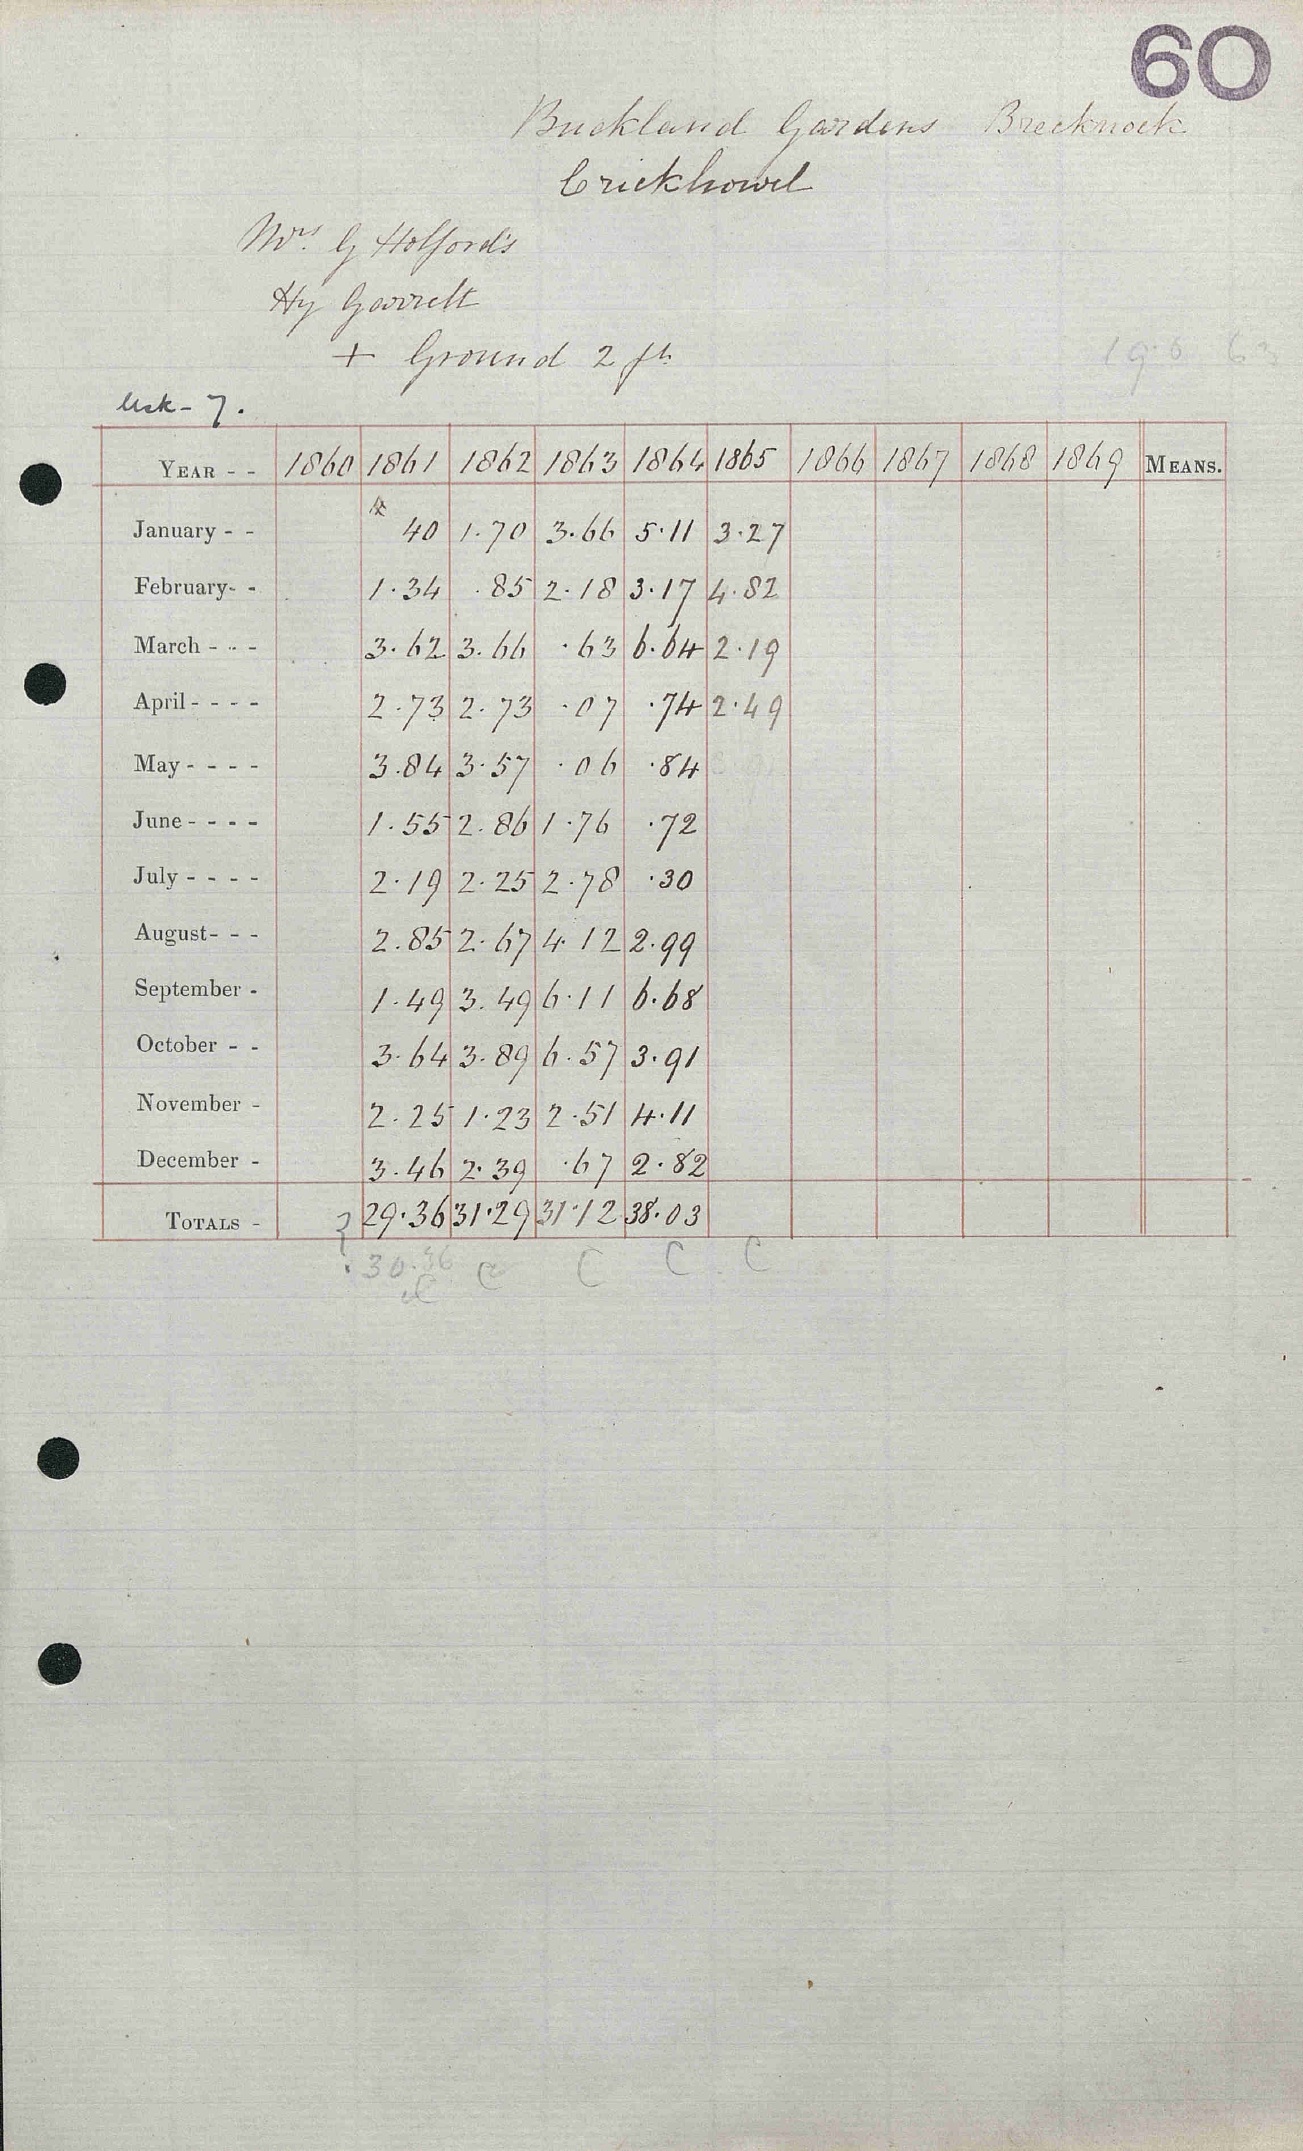 60
Buckland Gardens Brecknock
Crickhowel
Mrs. G Holford's
Hy Garrett
+ Ground 2 ft
Usk - 7.
YEAR - - 1860 1861 1862 1863 1864 1865 1866 1867 1868 1869 MEANS.
January - - 40 1.70 3.66 5.11 3.27
February - - 1.34 .85 2.18 3.17 4.82
March - - - 3.62 3.66 .63 6.64 2.19
April - - - - 2.73 2.73 .07 .74 2.49
May - - - - 3.84 3.57 .06 .84
June - - - - 1.55 2.86 1.76 .72
July - - - - 2.19 2.25 2.78 .30
August - - - 2.85 2.67 4.12 2.99
September - 1.49 3.49 6.11 6.68
October - - 3.64 3.89 6.57 3.91
November - 2.25 1.23 2.51 4.11
December - 3.46 2.39 .67 2.82
TOTALS - ? 29.36 31.29 31.12 38.03
30.36
C C C C C